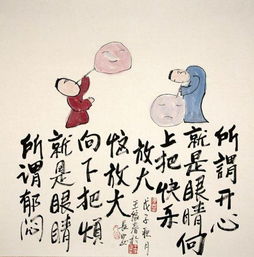 所謂开心
就是眼睛向
上把快乐
放大
所谓郁闷
就是眼睛
向下把煩
恼放大
戊子秋月